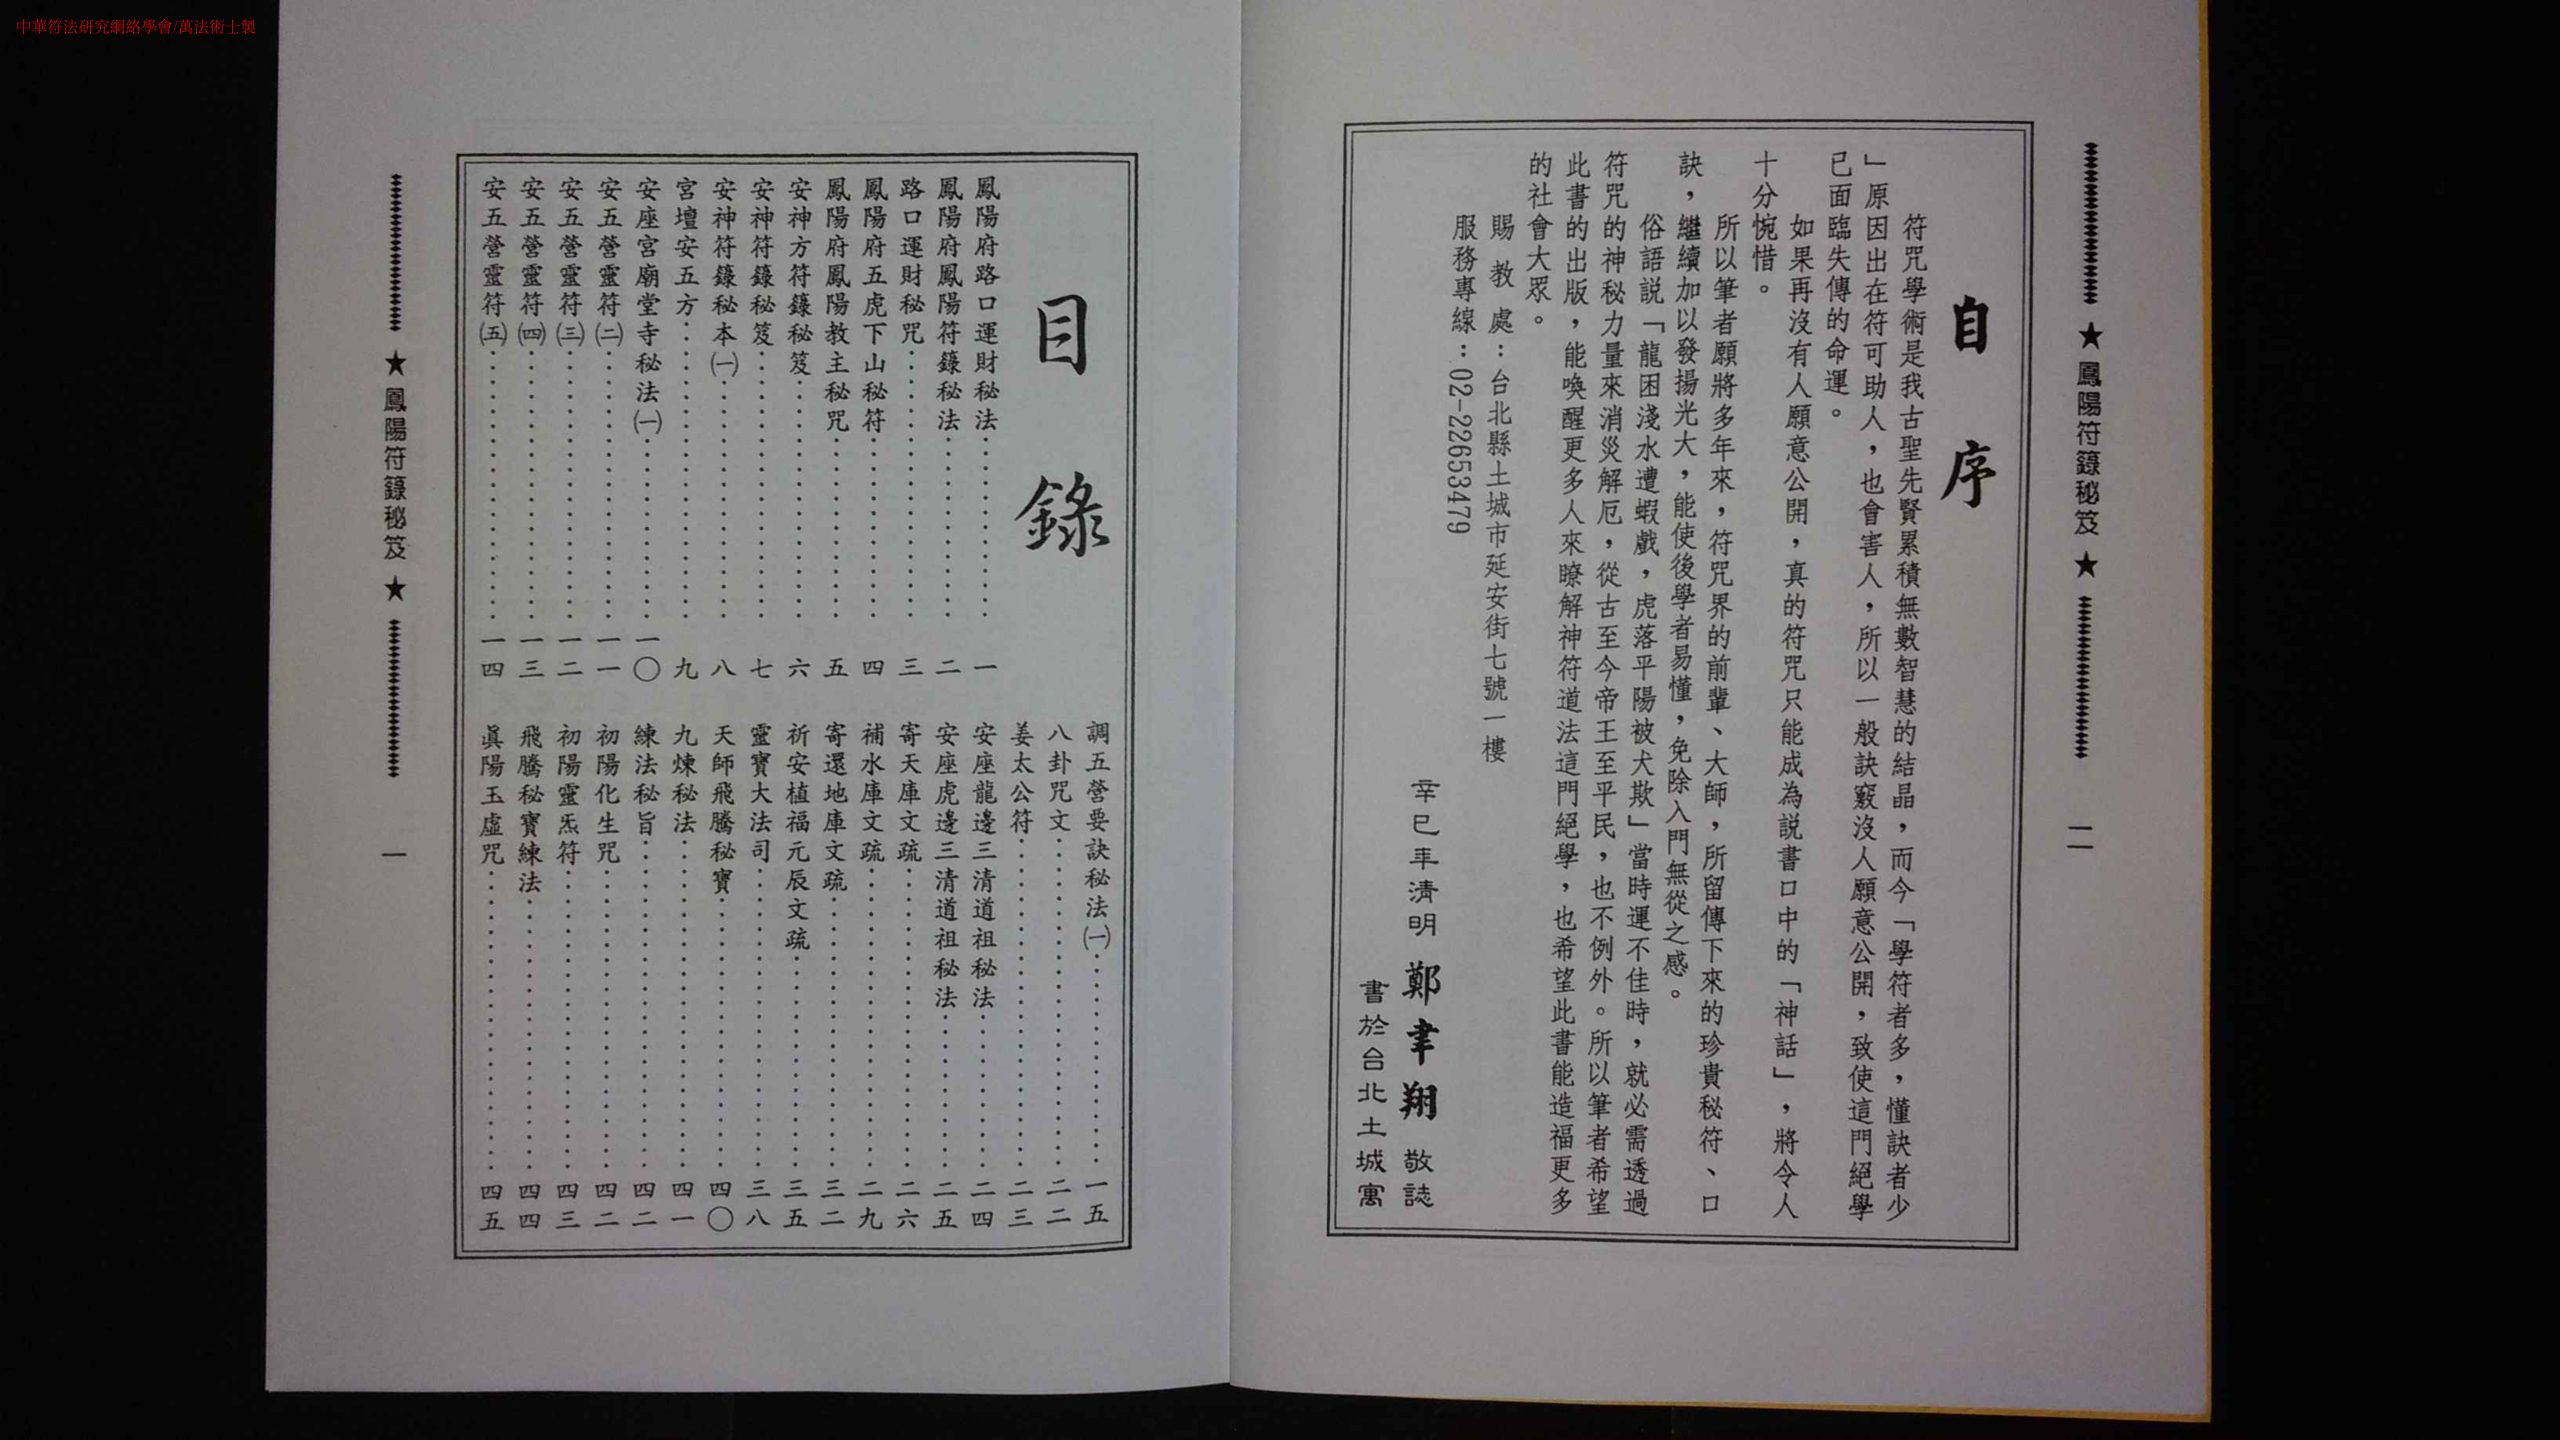 中華符法研究網絡學會/萬法術士製
★鳳陽符籙秘笈★
二
自序
符咒學術是我古聖先賢累積無數智慧的結晶，而今「學符者多，懂訣者少
」原因出在符可助人，也會害人，所以一般訣竅沒人願意公開，致使這門絕學
已面臨失傳的命運。
如果再沒有人願意公開，真的符咒只能成為説書口中的「神話」，將令人
十分惋惜。
所以筆者願將多年來，符咒界的前輩、大師，所留傳下來的珍貴秘符、口
訣，繼續加以發揚光大，能使後學者易懂，免除入門無從之感。
俗語説「龍困淺水遭蝦戲，虎落平陽被犬欺」當時運不佳時，就必需透過
符咒的神秘力量來消災解厄，從古至今帝王至平民，也不例外。所以筆者希望
此書的出版，能喚醒更多人來瞭解神符道法這門絕學，也希望此書能造福更多
的社會大眾。
賜教處：台北縣土城市延安街七號一樓
服務專線：02-22653479
辛巳年清明 鄭聿翔 敬誌
書於台北土城寓
目錄
鳳陽府路口運財秘法⋯⋯一
鳳陽府鳳陽符籙秘法⋯⋯二
路口運財秘咒⋯⋯三
鳳陽府五虎下山秘符⋯⋯四
鳳陽府鳳陽教主秘咒⋯⋯五
安神方符籙秘笈⋯⋯六
安神符籙秘笈⋯⋯七
安神符籙秘本㈠⋯⋯八
宮壇安五方⋯⋯九
安座宮廟堂寺秘法㈠⋯⋯一〇
安五營靈符㈡⋯⋯一一
安五營靈符㈢⋯⋯一二
安五營靈符㈣⋯⋯一三
安五營靈符㈤⋯⋯一四
調五營要訣秘法㈠⋯⋯一五
八卦咒文⋯⋯二二
姜太公符⋯⋯二三
安座龍邊三清道祖秘法⋯⋯二四
安座虎邊三清道祖秘法⋯⋯二五
寄天庫文疏⋯⋯二六
補水庫文疏⋯⋯二九
寄還地庫文疏⋯⋯三二
祈安植福元辰文疏⋯⋯三五
靈寶大法司⋯⋯三八
天師飛騰秘寶⋯⋯四〇
九煉秘法⋯⋯四一
練法秘旨⋯⋯四二
初陽化生咒⋯⋯四二
初陽靈炁符⋯⋯四三
飛騰秘寶練法⋯⋯四四
眞陽玉虛咒⋯⋯四五
★鳳陽符籙秘笈★
一